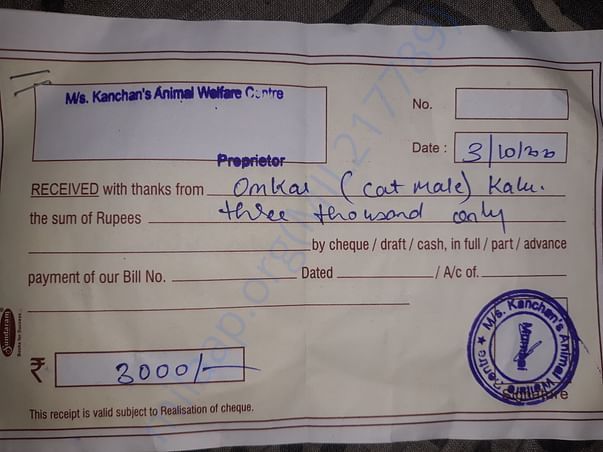 M/s. Kanchan's Animal Welfare Centre
Proprietor
No.
Date : 3/10/20
RECEIVED with thanks from Omkar (cat male) Kalu.
the sum of Rupees three thousand only
by cheque / draft / cash, in full / part / advance
payment of our Bill No. Dated / A/c of.
₹ 3000/-
M/s. Kanchan's Animal Welfare Centre ★
Mumbai
Signature
This receipt is valid subject to Realisation of cheque.
Sundaram